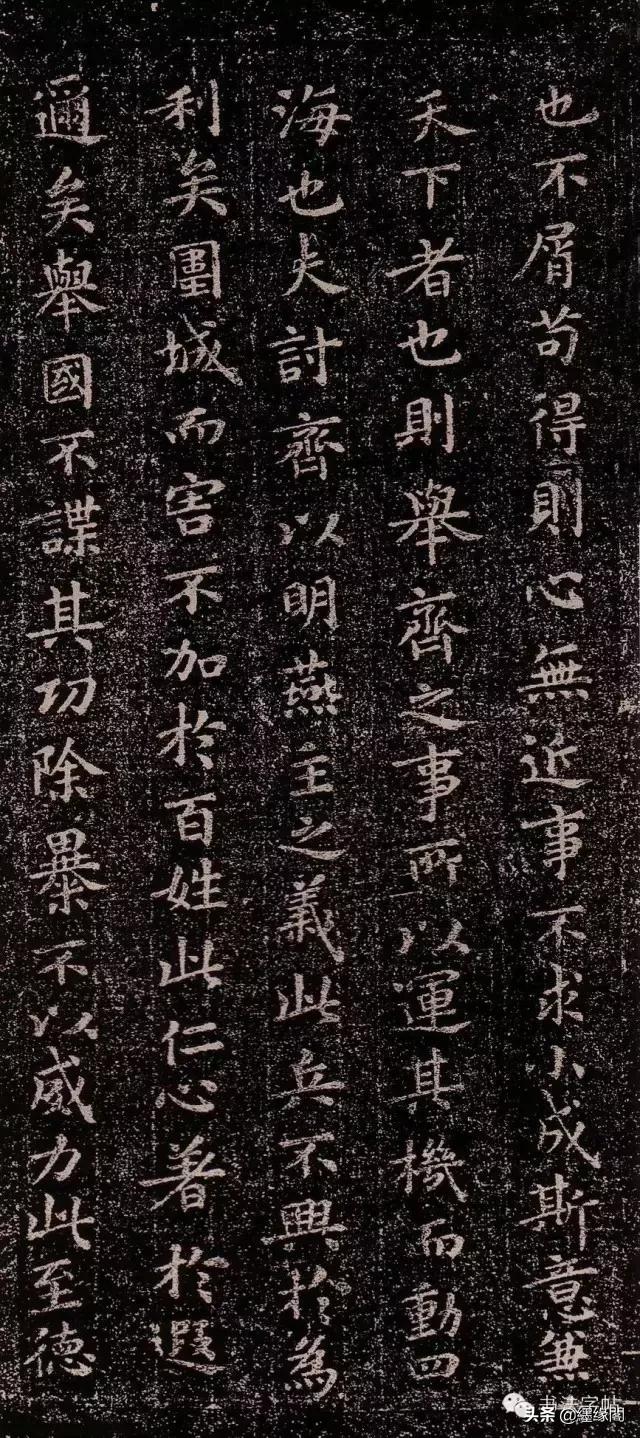 也不屑苟得則心無近事不求小成斯意兼
天下者也則舉齊之事所以運其機而動四
海也夫討齊以明燕主之義此兵不興於為
利矣圍城而害不加於百姓此仁心著於遐
邇矣舉國不謀其功除暴不以威力此至德
书法字帖
头条